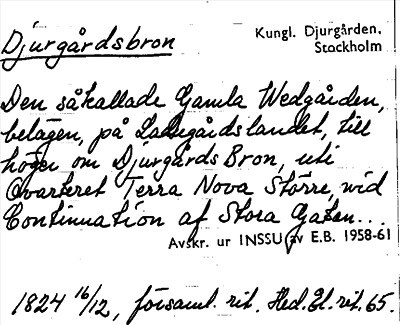 Djurgårdsbron
Kungl. Djurgården,
Stockholm
Den såkallade Gamla Wedgården,
belägen, på Ladugårdslandet, till
höger om DjurgårdsBron, uti
Qvarteret Terra Nova Större, wid
Continuation af Stora Gatan...
Avskr. ur INSSU av E.B. 1958-61
1824 16/12, församl. rit. Hed. Gl. rit. 65.